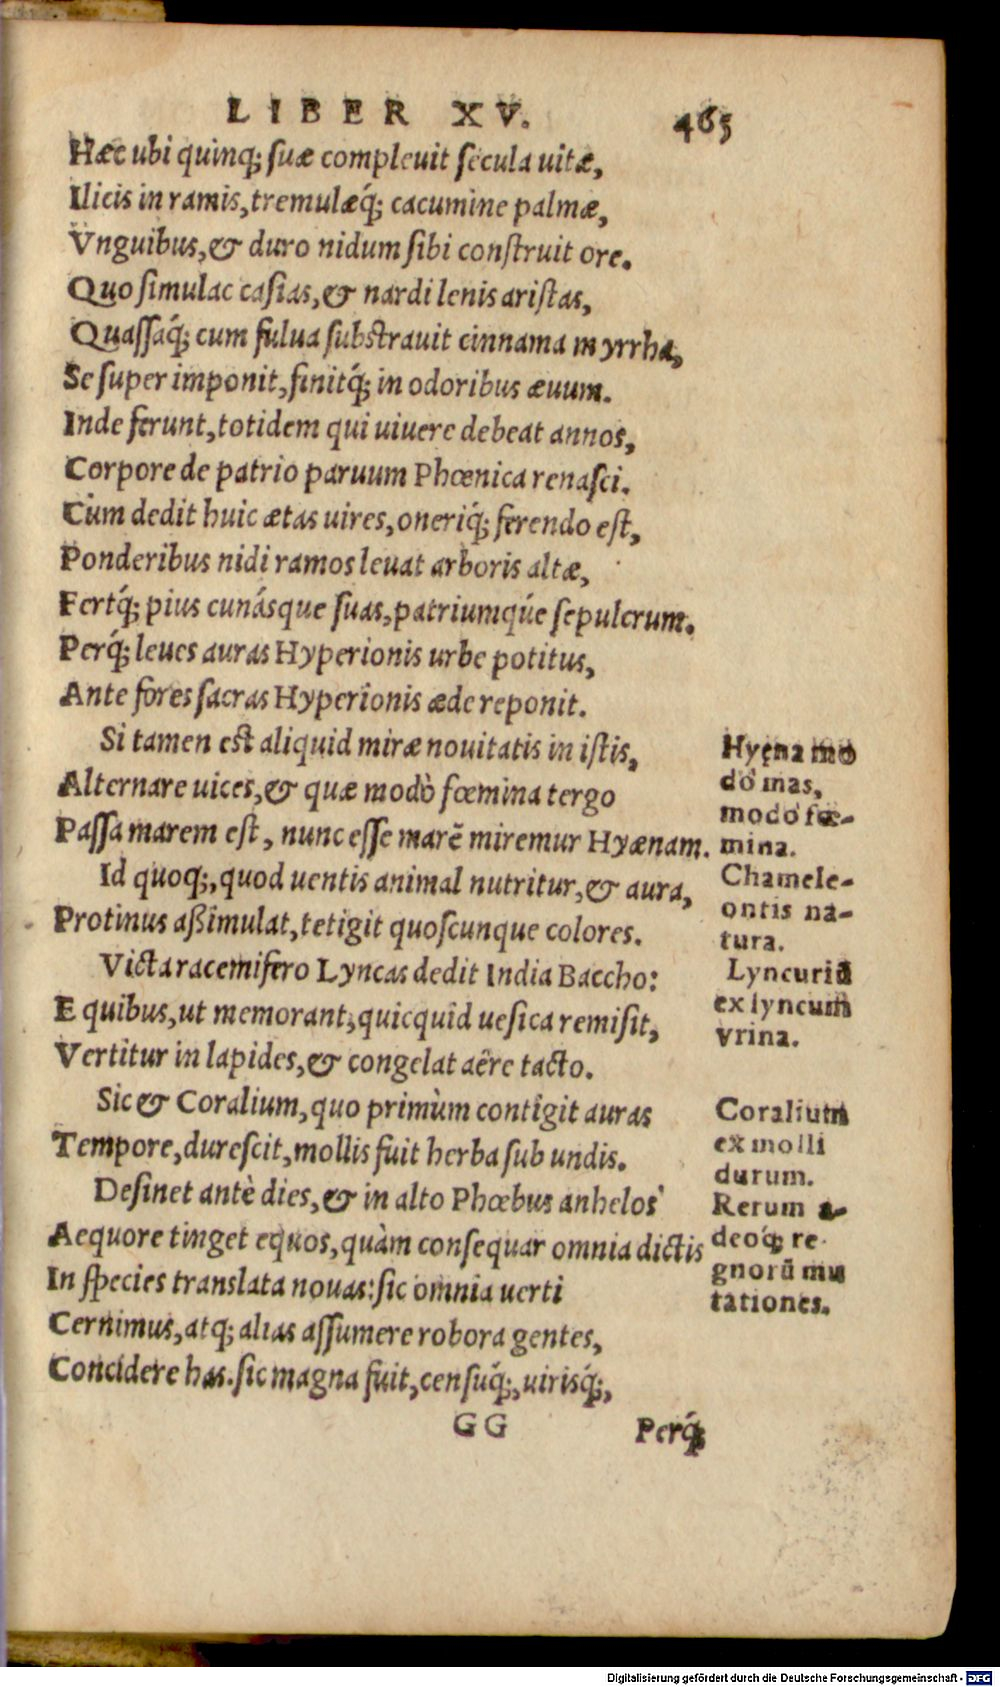 LIBER XV. 465
Hæc ubi quinq; suæ compleuit secula uitæ,
Ilicis in ramis, tremulæq́; cacumine palmæ,
Vnguibus, & duro nidum sibi construit ore.
Quo simulac casias, & nardi lenis aristas,
Quassaq́; cum fulua substrauit cinnama myrrha,
Se super imponit, finitq́; in odoribus æuum.
Inde ferunt, totidem qui uiuere debeat annos,
Corpore de patrio paruum Phœnica renasci.
Cùm dedit huic ætas uires, oneriq́; ferendo est,
Ponderibus nidi ramos leuat arboris altæ,
Fertq́; pius cunásque suas, patriumqúe sepulcrum.
Perq́; leues auras Hyperionis urbe potitus,
Ante fores sacras Hyperionis æde reponit.
Si tamen est aliquid miræ nouitatis in istis,
Alternare uices, & quæ modò fœmina tergo
Passa marem est, nunc esse marẽ miremur Hyænam.
Id quoq;, quod uentis animal nutritur, & aura,
Protinus aßimulat, tetigit quoscunque colores.
Victa racemifero Lyncas dedit India Baccho:
E quibus, ut memorant, quicquid uesica remisit,
Vertitur in lapides, & congelat aëre tacto.
Sic & Coralium, quo primùm contigit auras
Tempore, durescit, mollis fuit herba sub undis.
Desinet antè dies, & in alto Phœbus anhelos
Aequore tinget equos, quàm consequar omnia dictis
In species translata nouas: sic omnia uerti
Cernimus, atq; alias assumere robora gentes,
Concidere has. sic magna fuit, censuq́;, uirisq́;,
GG Perq́;
Hyęna mo
dò mas,
modò fœ-
mina.
Chamele-
ontis na-
tura.
Lyncuriũ
ex lyncum
vrina.
Coralium
ex molli
durum.
Rerum a-
deoq́; re
gnorũ mu
tationes.
Digitalisierung gefördert durch die Deutsche Forschungsgemeinschaft - DFG